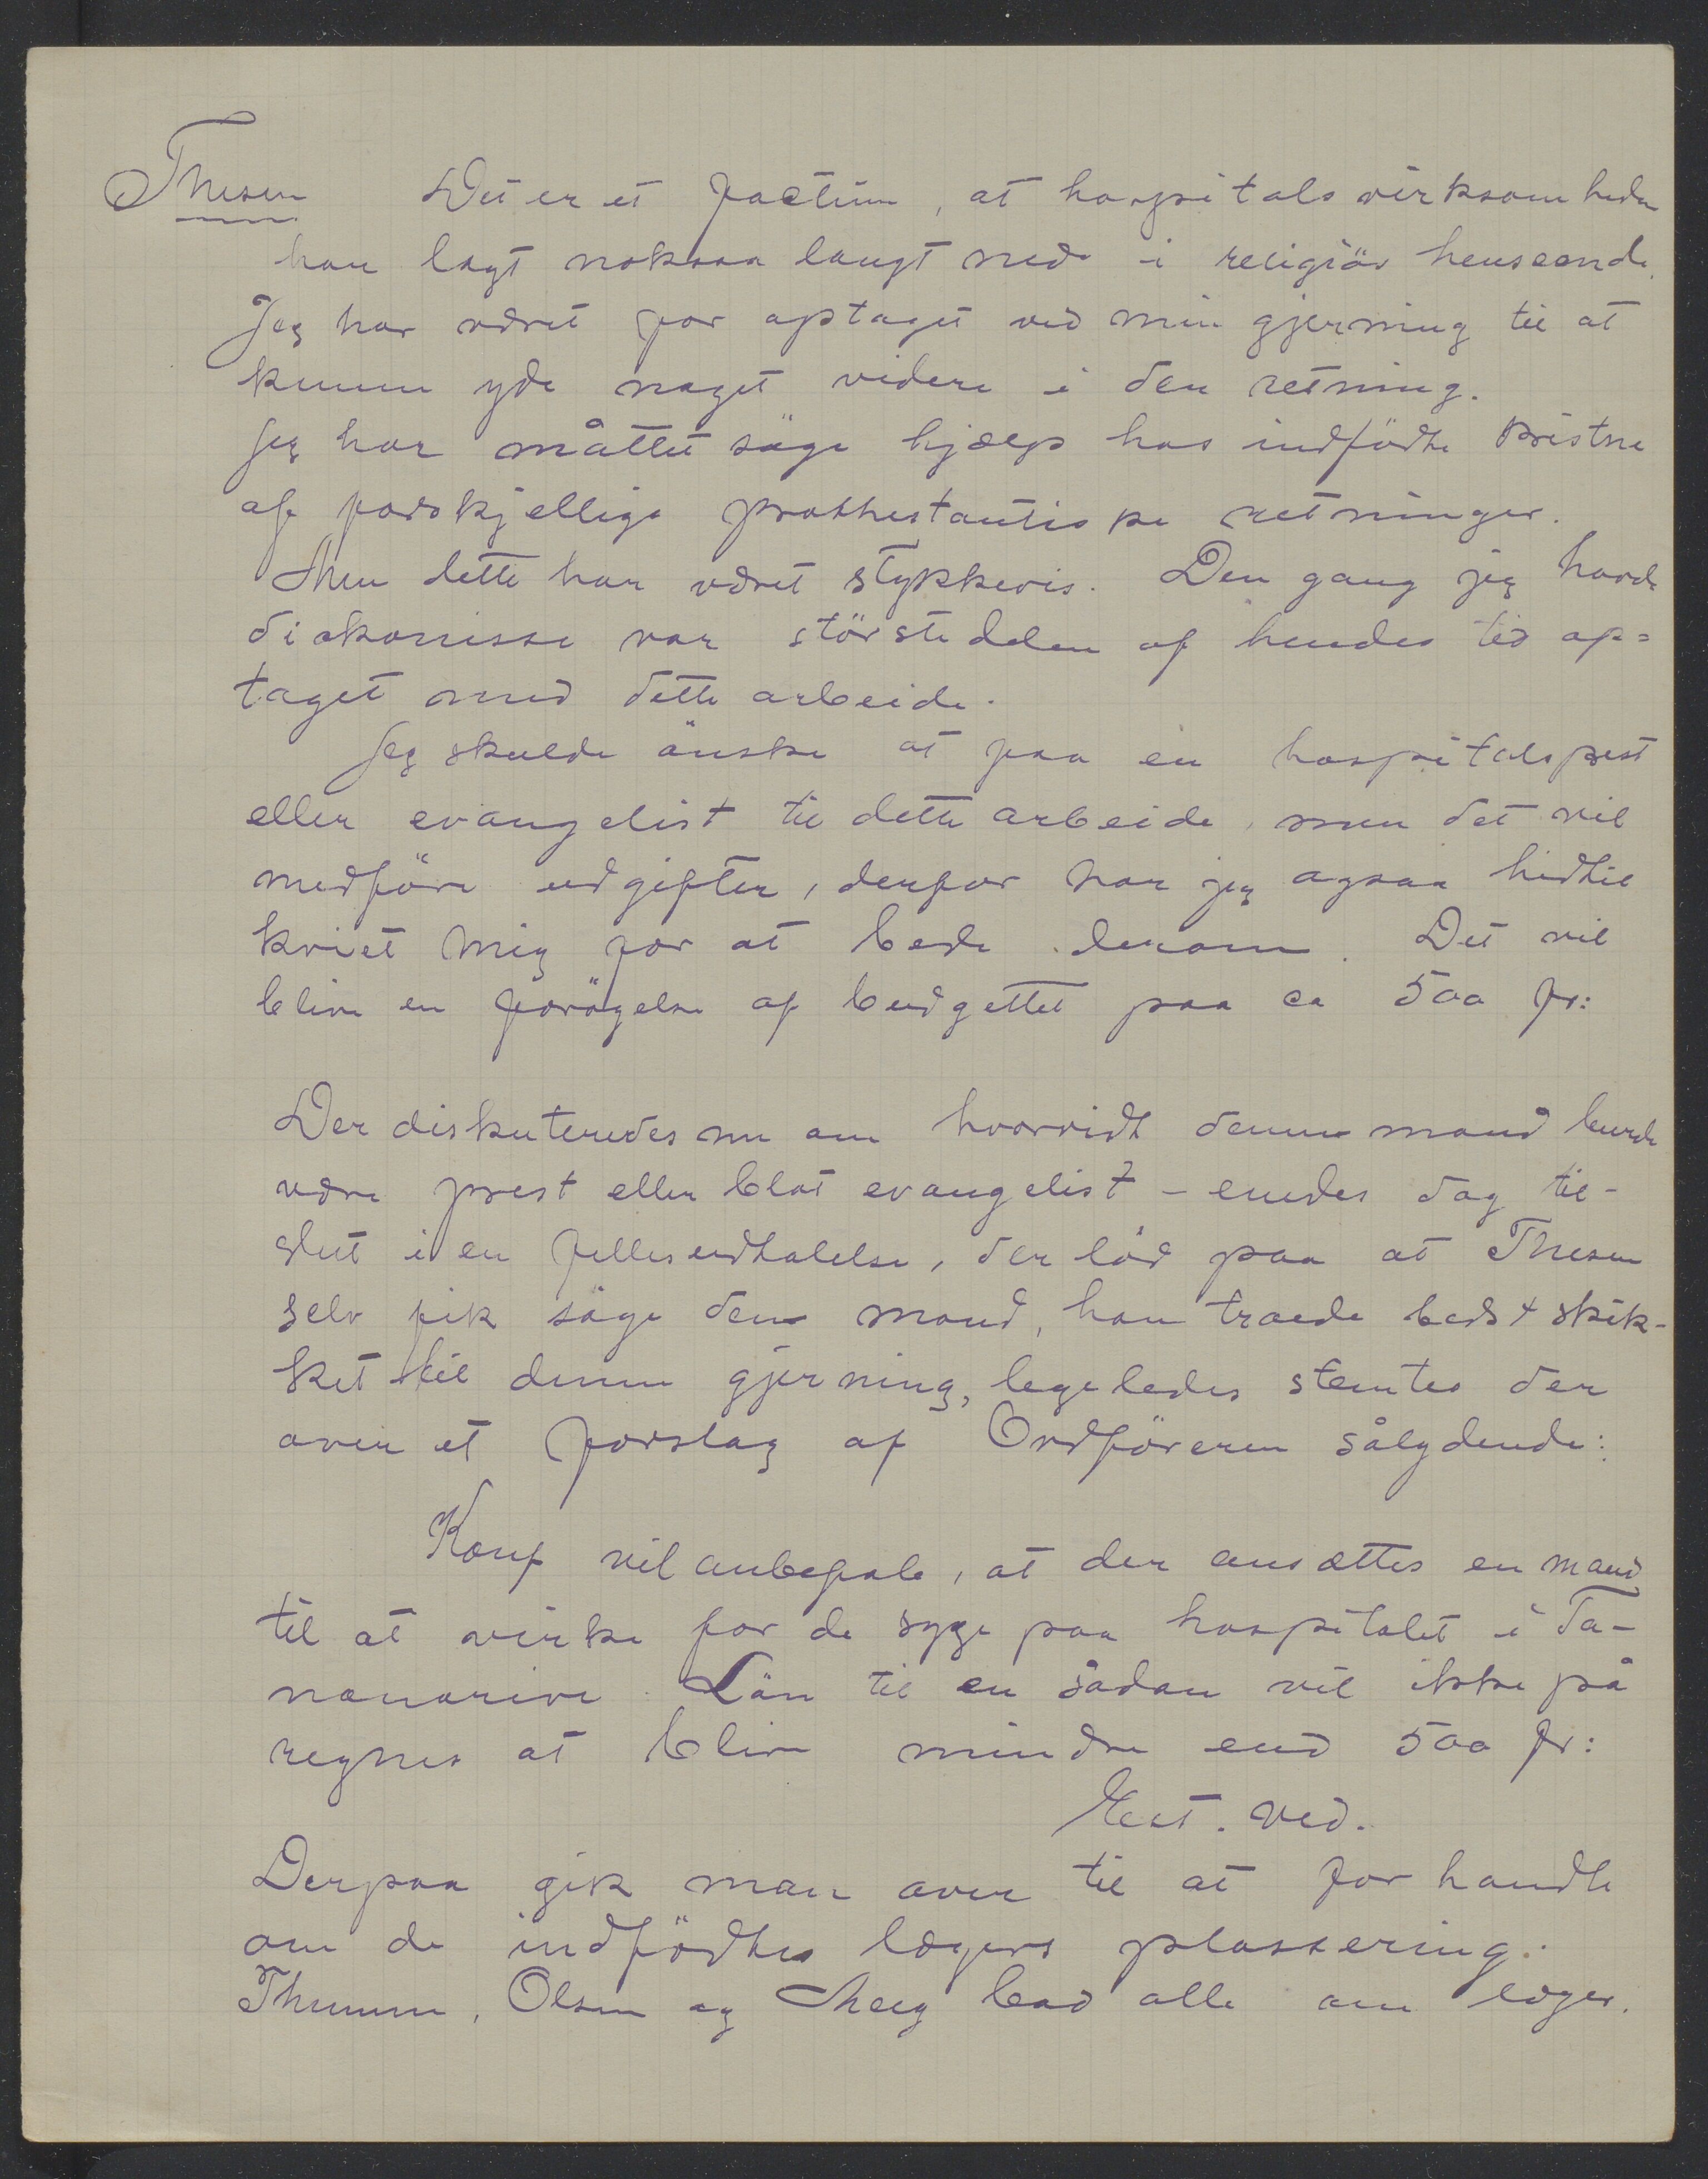 Thesen Det er et factum, at hospitalsvirksomheden
har lagt noksaa langt nede i religiös henseende.
Jeg har været for optaget ved min gjerning til at
kunne yde noget videre i den retning.
Jeg har måttet söge hjælp hos indfödte kristne
af forskjellige prothestantiske retninger.
Men dette har været stykkevis. Den gang jeg havde
diakonisse var störstedelen af hendes tid op=
taget med dette arbeide.
Jeg skulde önske at faa en hospitalsprest
eller evangelist til dette arbeide, men det vil
medföre udgifter, derfor har jeg ogsaa hidtil
kviet mig for at bede derom. Det vil
blive en forögelse af budgettet paa ca 500 fr:
Der diskuteredes nu om hvorvidt denne mand burde
være prest eller blot evangelist - endes dog til-
slut i en fellesudtalelse, der löd paa at Thesen
selv fik söge den mand, han troede bedst skik-
ket til denne gjerning, legeledes stemtes der
over et forslag af Ordföreren sålydende:
Konf vil anbefale, at der ansættes en mand
til at virke for de syge paa hospitalet i Ta-
nanarive. Lön til en sådan vil ikke på
regnes at blive mindre end 500 fr:
Enst. ved.
Derpaa gik man over til at forhandle
om de indfödtes lægers plassering.
Thunem, Olsen og Meeg bad alle om læger.